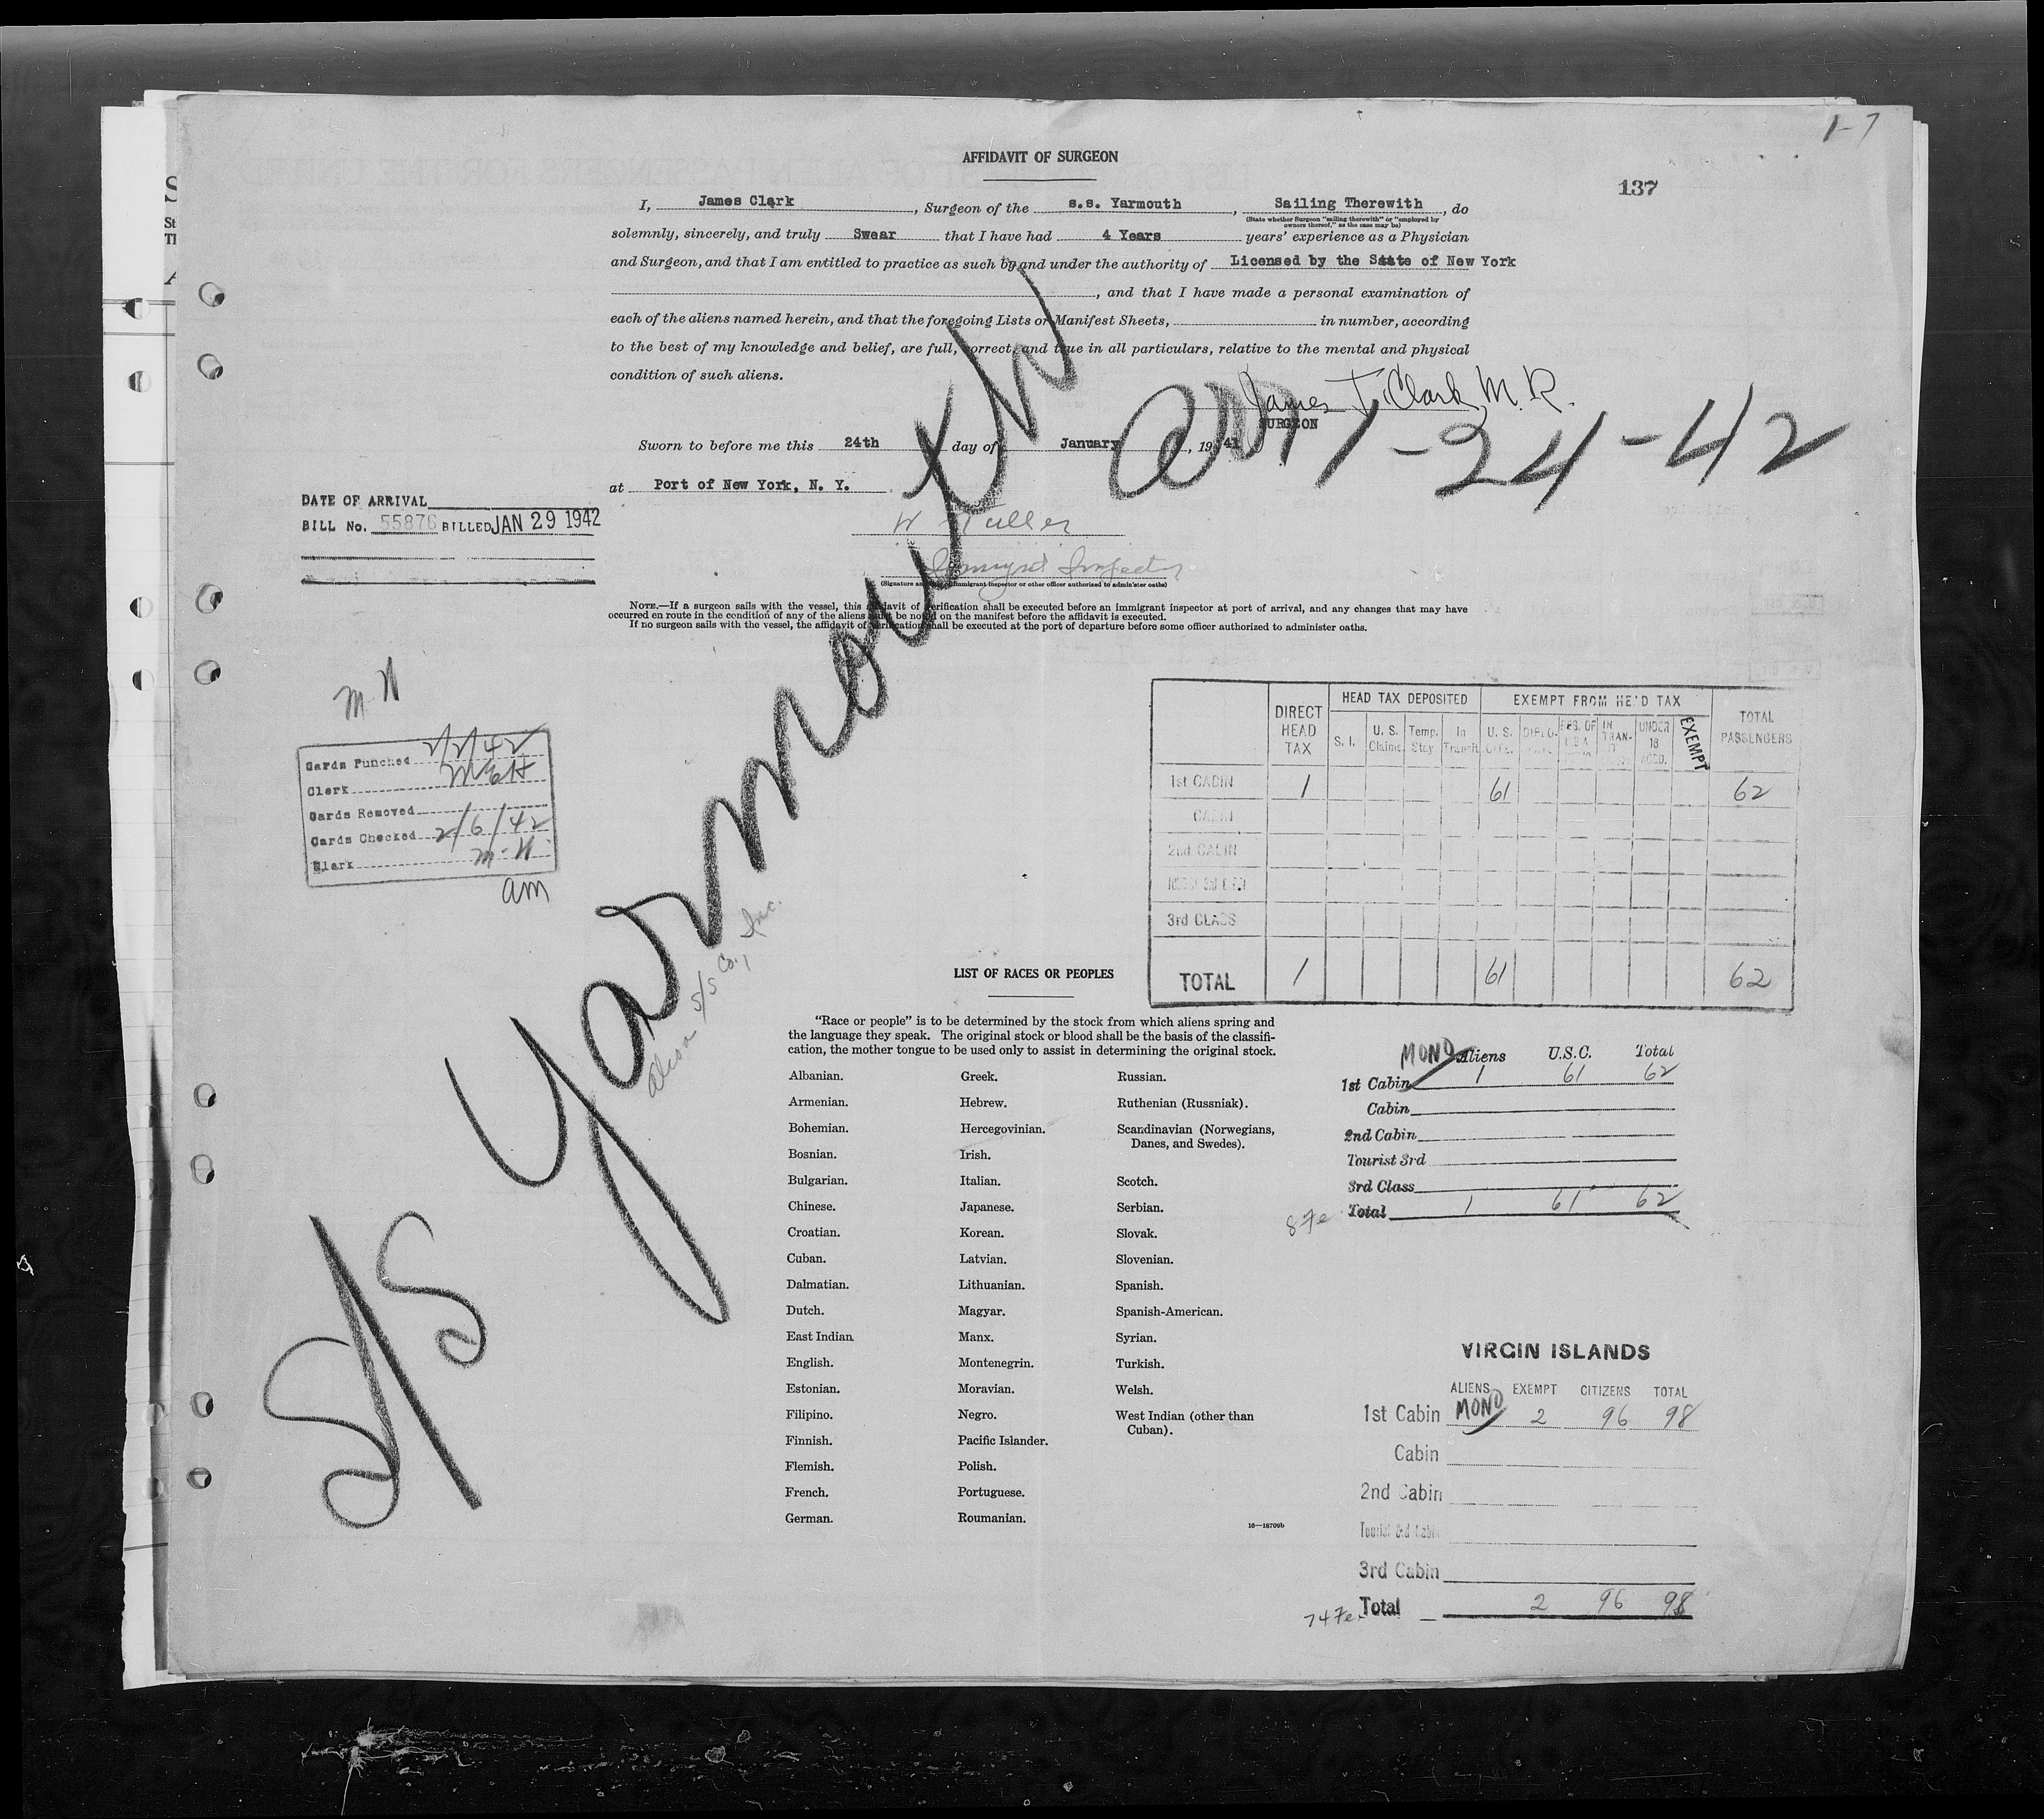 1-7
AFFIDAVIT OF SURGEON
137
I, James Clark, Surgeon of the s.s. Yarmouth, Sailing Therewith, do
(State whether Surgeon "sailing therewith" or "employed by
owners thereof," as the case may be)
solemnly, sincerely, and truly Swear that I have had 4 Years years' experience as a Physician
and Surgeon, and that I am entitled to practice as such by and under the authority of Licensed by the State of New York
, and that I have made a personal examination of
each of the aliens named herein, and that the foregoing Lists or Manifest Sheets, in number, according
to the best of my knowledge and belief, are full, correct, and true in all particulars, relative to the mental and physical
condition of such aliens.
James T. Clark M.D.
SURGEON
Arr 1-24-42
Sworn to before me this 24th day of January, 1941
at Port of New York, N. Y.
DATE OF ARRIVAL
BILL No. 55876 BILLED JAN 29 1942
W Fuller
Immigrant Inspector
(Signature and title of immigrant inspector or other officer authorized to administer oaths)
NOTE.—If a surgeon sails with the vessel, this affidavit of verification shall be executed before an immigrant inspector at port of arrival, and any changes that may have
occurred en route in the condition of any of the aliens must be noted on the manifest before the affidavit is executed.
If no surgeon sails with the vessel, the affidavit of verification shall be executed at the port of departure before some officer authorized to administer oaths.
M. H
Cards Punched 2/2/42
Clerk McH
Cards Removed
Cards Checked 2/6/42
Clerk M-H.
am
S/S Yarmouth
Alcoa S/S Co., Inc.
DIRECT HEAD TAX
HEAD TAX DEPOSITED
EXEMPT FROM HEAD TAX
TOTAL PASSENGERS
S. I. U. S. Claims Temp. Stay In Transit U. S. CITZ. DIPLO. RES. OF IN TRAN- UNDER 18 ACCD. EXEMPT
1st CABIN 1 61 62
CABIN
2nd CABIN
3rd CLASS
TOTAL 1 61 62
LIST OF RACES OR PEOPLES
"Race or people" is to be determined by the stock from which aliens spring and
the language they speak. The original stock or blood shall be the basis of the classifi-
cation, the mother tongue to be used only to assist in determining the original stock.
Albanian.
Armenian.
Bohemian.
Bosnian.
Bulgarian.
Chinese.
Croatian.
Cuban.
Dalmatian.
Dutch.
East Indian
English.
Estonian.
Filipino.
Finnish.
Flemish.
French.
German.
Greek.
Hebrew.
Hercegovinian.
Irish.
Italian.
Japanese.
Korean.
Latvian.
Lithuanian.
Magyar.
Manx.
Montenegrin.
Moravian.
Negro.
Pacific Islander.
Polish.
Portuguese.
Roumanian.
Russian.
Ruthenian (Russniak).
Scandinavian (Norwegians,
Danes, and Swedes).
Scotch.
Serbian.
Slovak.
Slovenian.
Spanish.
Spanish-American.
Syrian.
Turkish.
Welsh.
West Indian (other than
Cuban).
16—18709b
MONO Aliens U.S.C. Total
1st Cabin 1 61 62
Cabin
2nd Cabin
Tourist 3rd
3rd Class
Total 1 61 62
VIRGIN ISLANDS
ALIENS EXEMPT CITIZENS TOTAL
1st Cabin MONO 2 96 98
Cabin
2nd Cabin
Tourist 3rd Cabin
3rd Cabin
Total 2 96 98